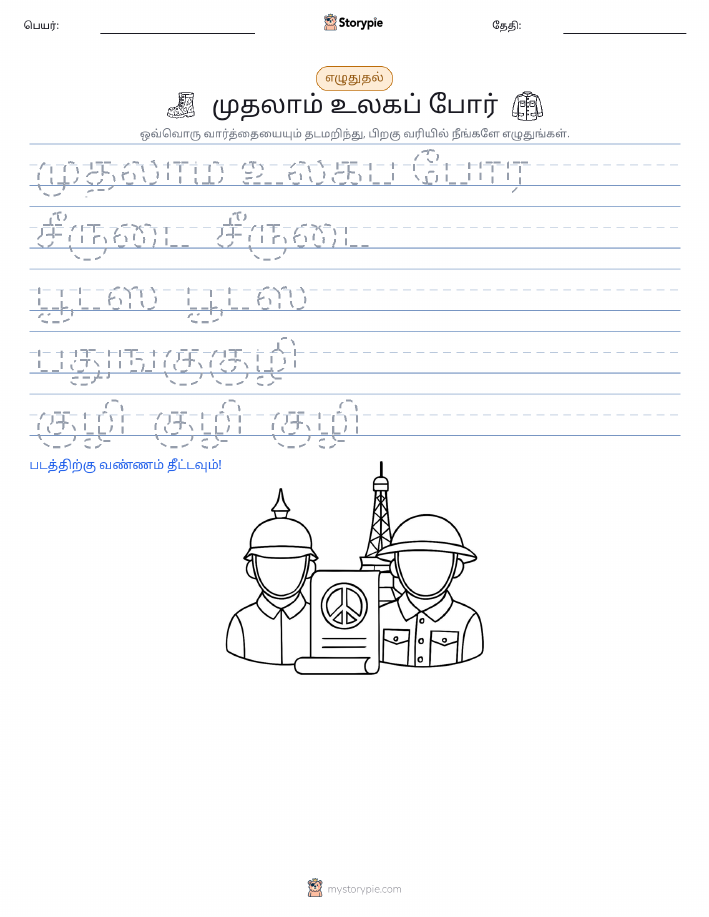 பெயர்:
Storypie
தேதி:
எழுதுதல்
முதலாம் உலகப் போர்
ஒவ்வொரு வார்த்தையையும் தடமறிந்து, பிறகு வரியில் நீங்களே எழுதுங்கள்.
முதலாம உலகப போர
சீருடை சீருடை
பூடஸ பூடஸ
பதுஙகுகுழி
குழி குழி குழி
படத்திற்கு வண்ணம் தீட்டவும்!
mystorypie.com